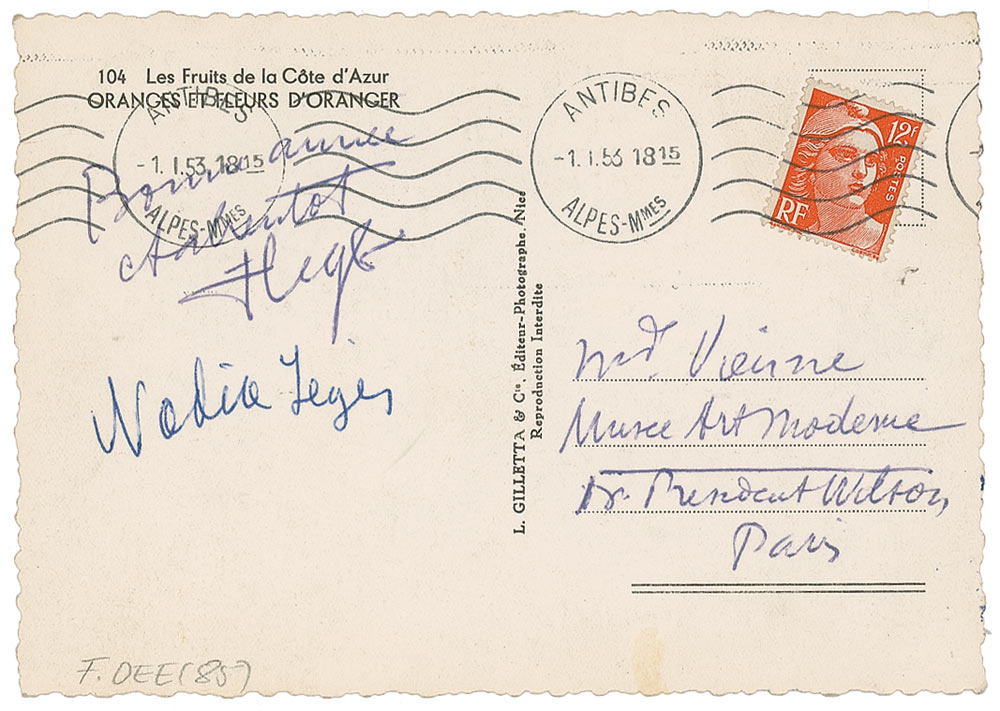 104 Les Fruits de la Côte d'Azur
ORANGES ET FLEURS D'ORANGER
ANTIBES
-1.I.53 1815
ALPES-MMES
Bonne année
à bientôt
FLeger
Nadia Leger
L. GILLETTA & Cie, Éditeur-Photographe, Nice
Reproduction Interdite
ANTIBES
-1.I.53 1815
ALPES-MMES
12f
POSTES
RF
Vienne
Musee Art Moderne
President Wilson
Paris
F. DEE (85)